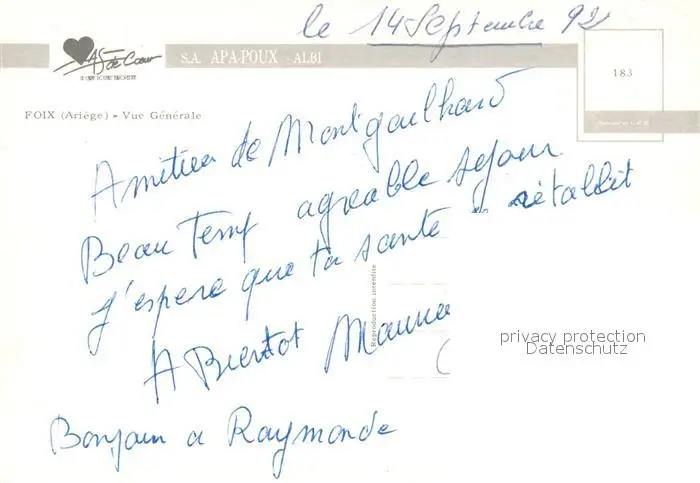 le 14 Septembre 92
As de Cœur
S.A. APA-POUX - ALBI
183
FOIX (Ariège) - Vue Générale
Amitiés de Montgailhard
Beau Temp agreable sejour
J'espere que ta santé rétablit
A Bientot
Bonjour a Raymonde
Reproduction interdite
privacy protection
Datenschutz